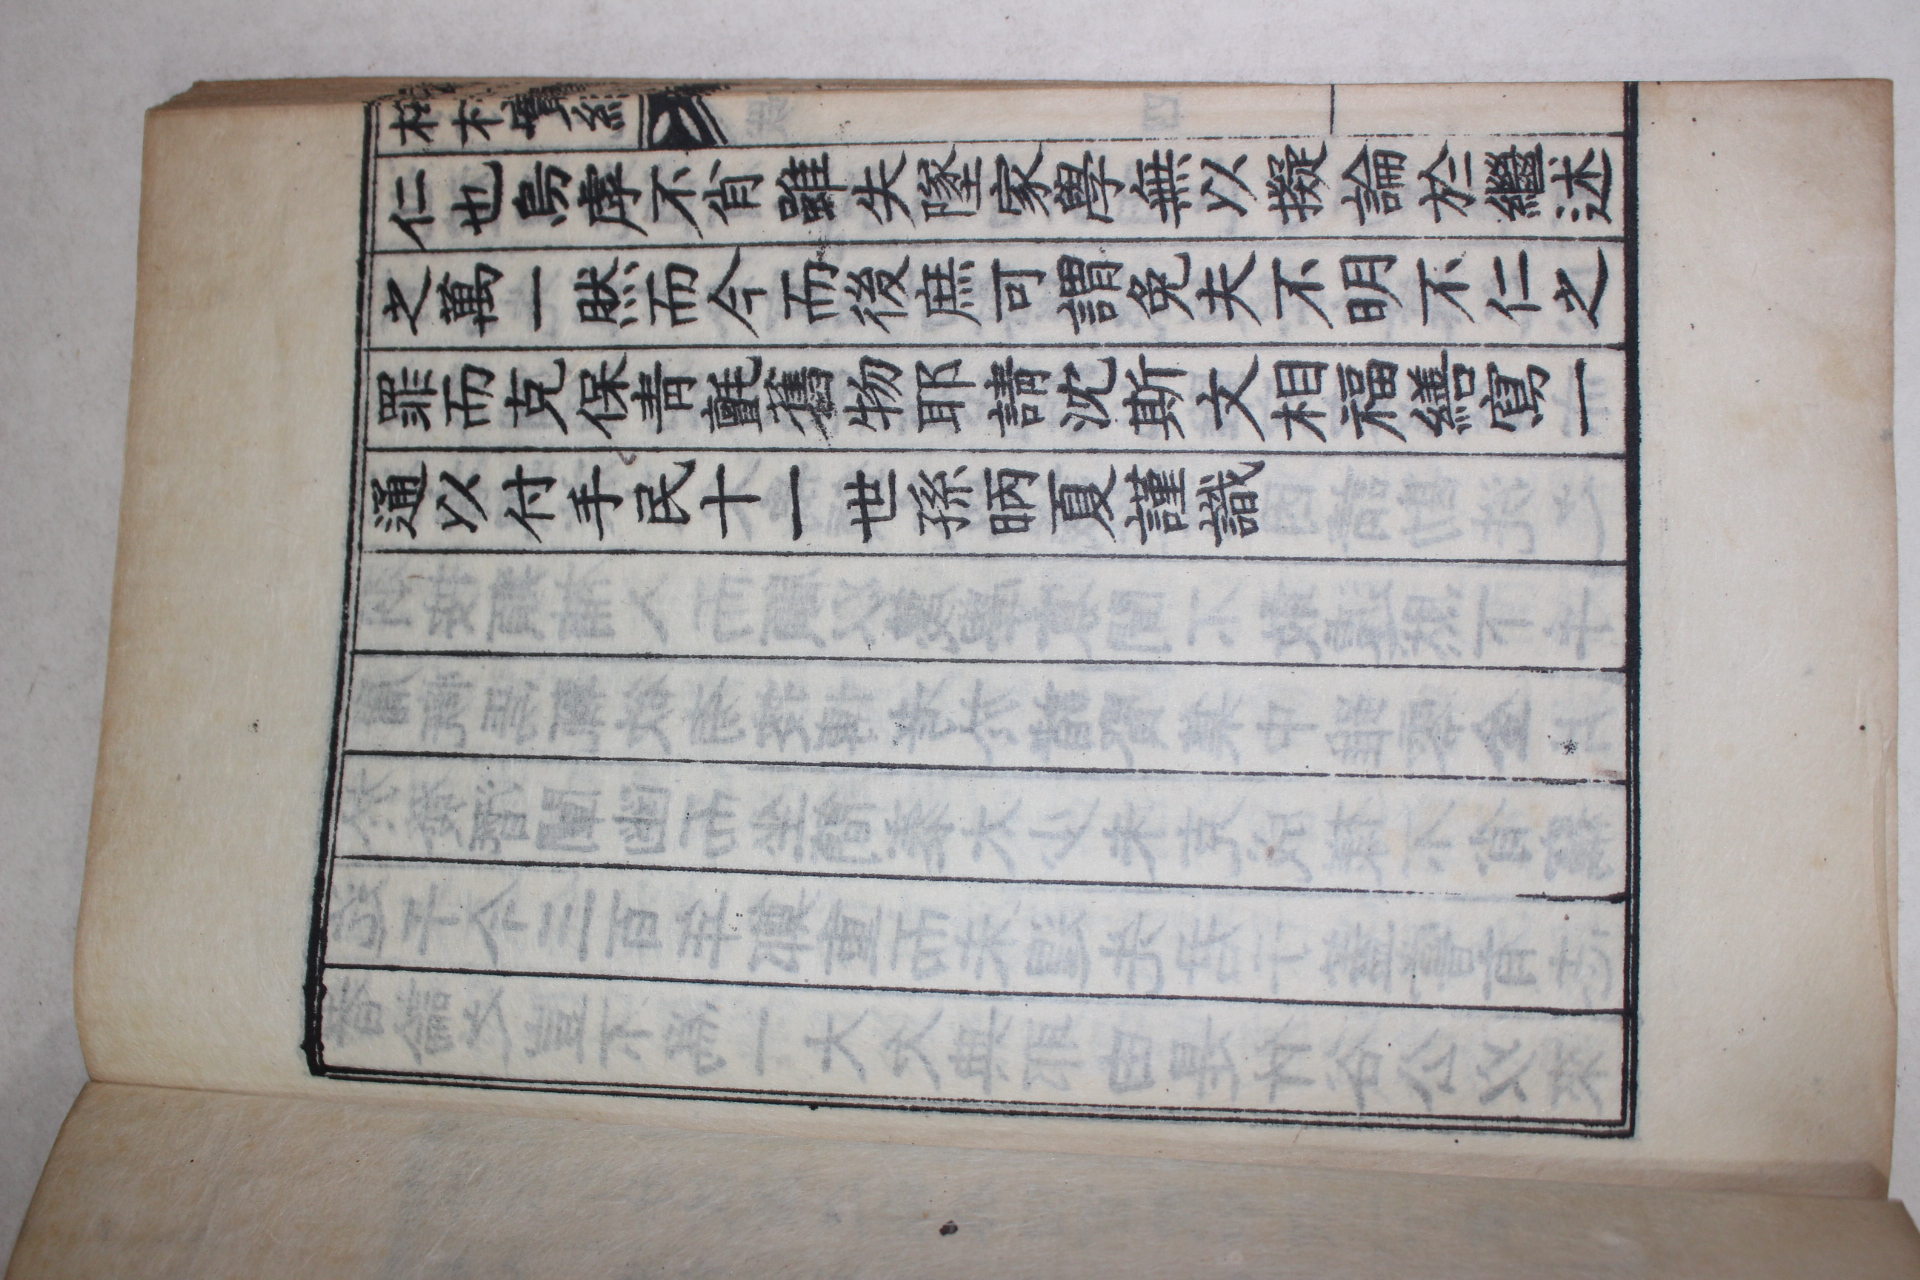 仁也烏虖不肖雖失墜家學無以擬論於繼述
之萬一然而今而後庶可謂免夫不明不仁之
罪而克保青氈舊物耶請沈斯文相福繕寫一
通以付手民十一世孫昞夏謹識